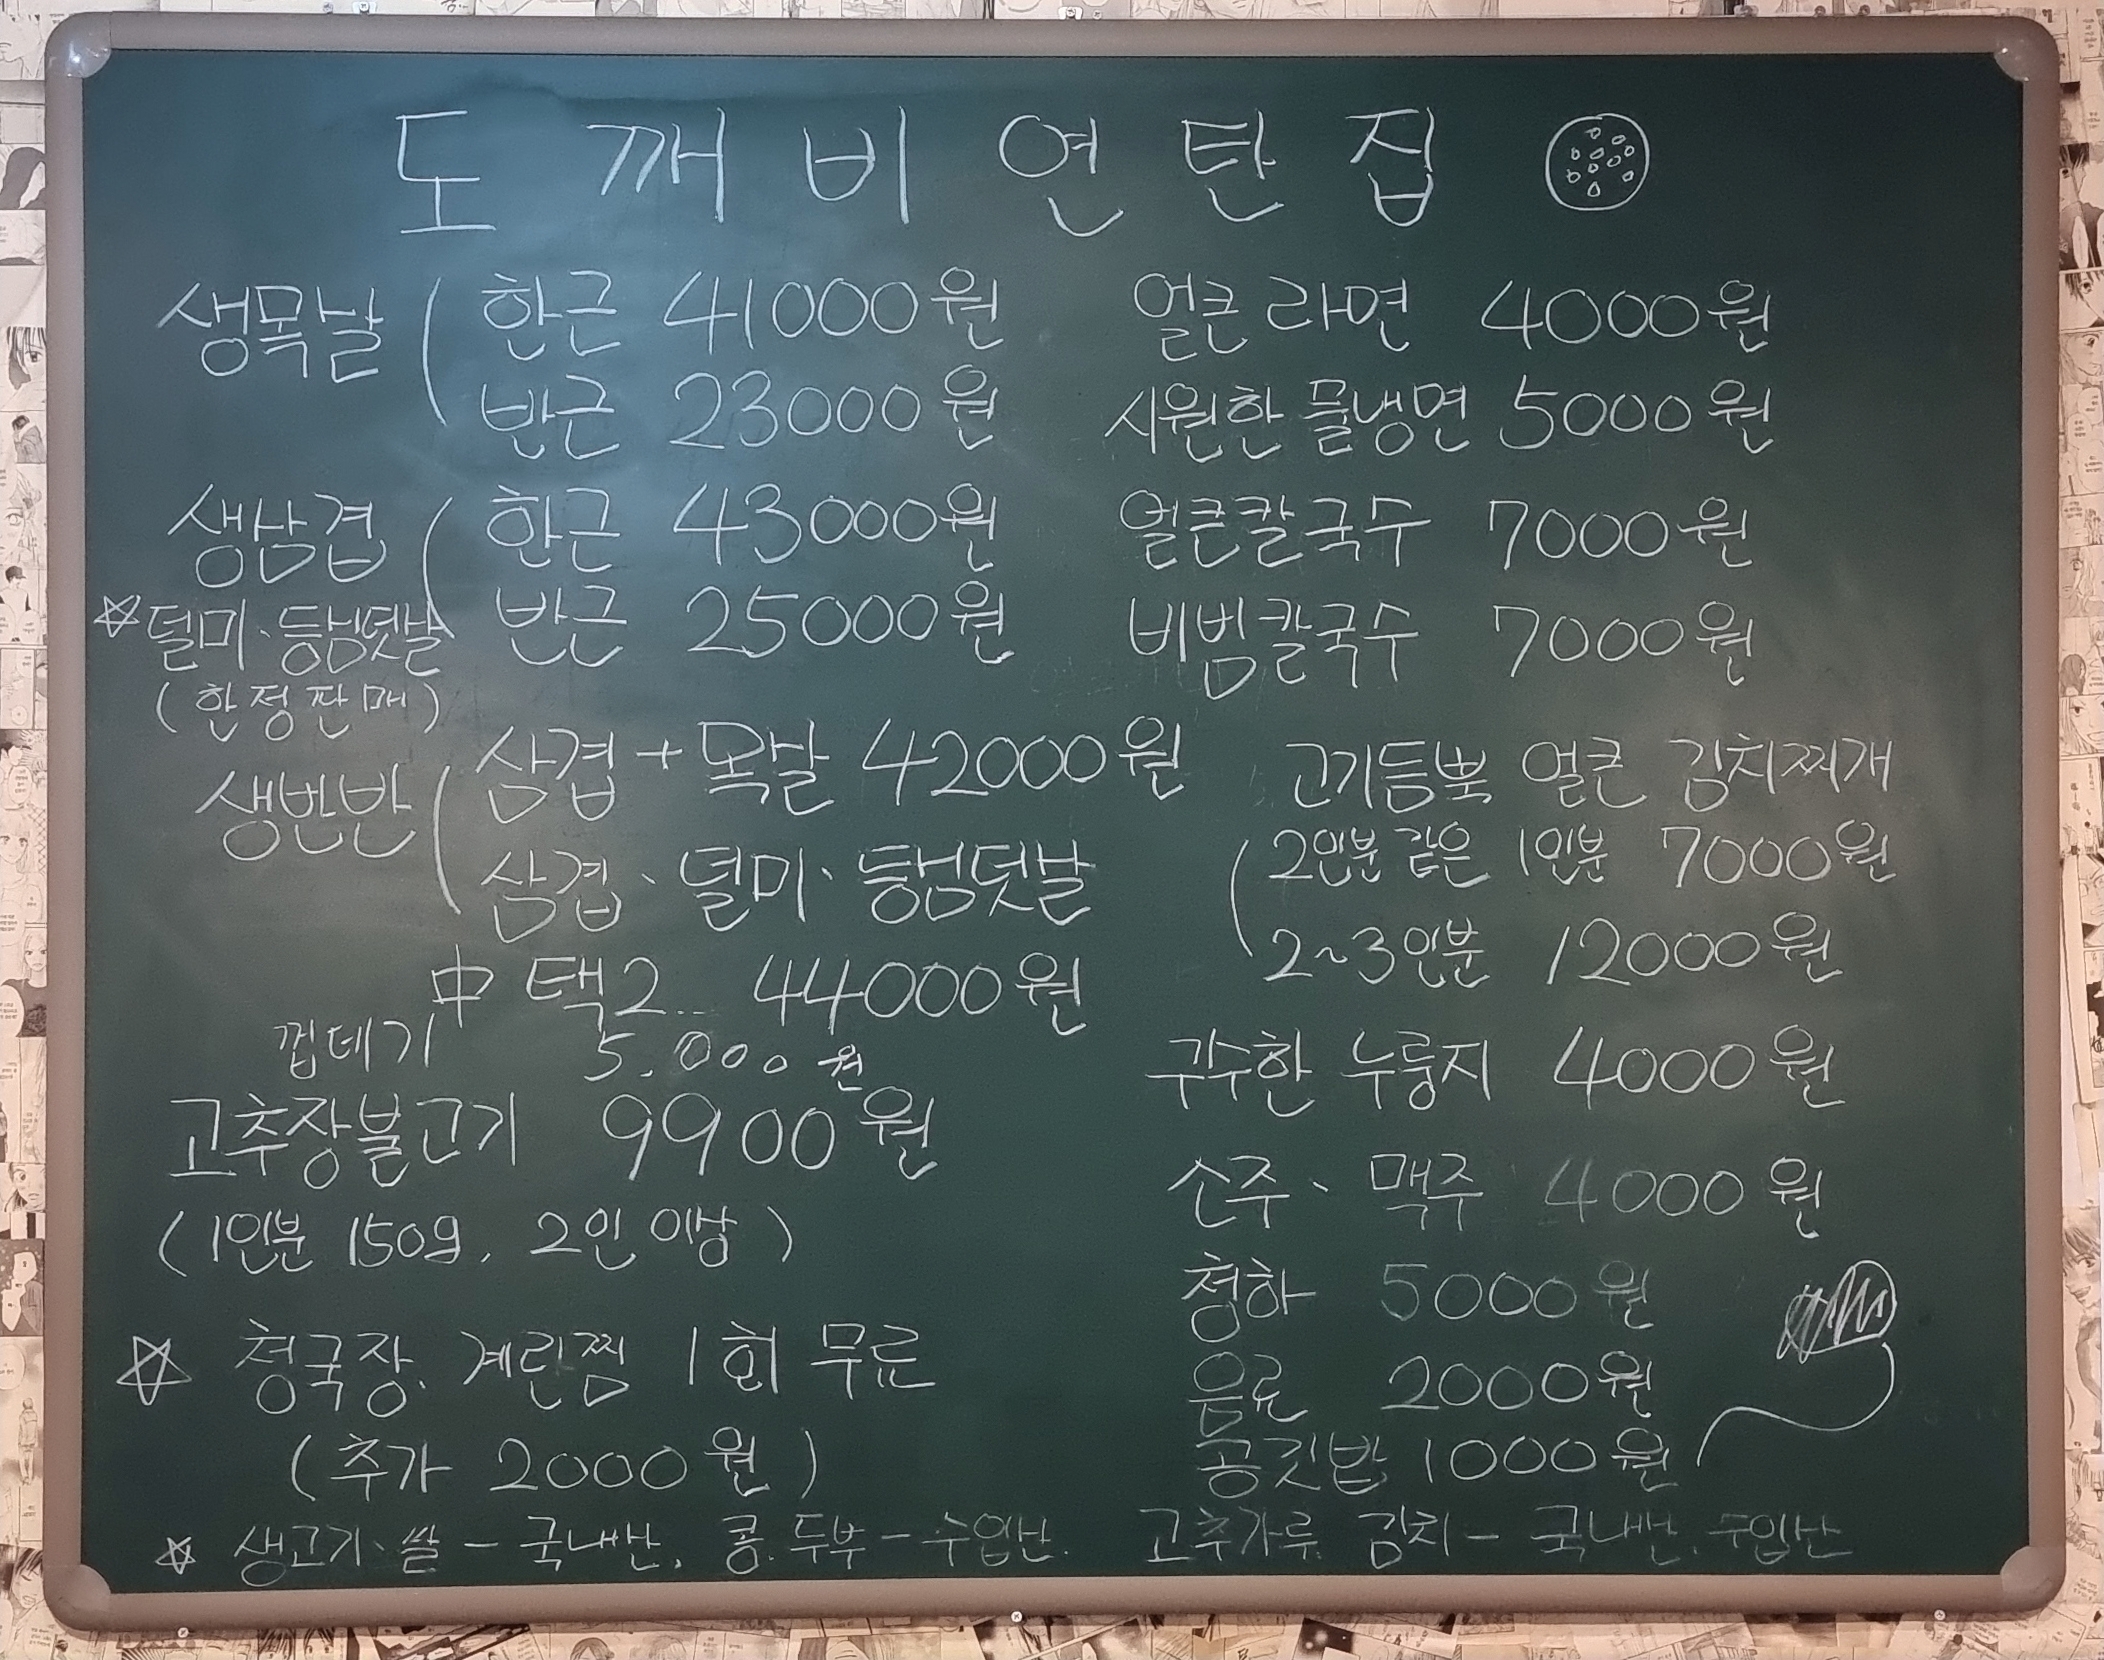 도깨비연탄집
생목살 ( 한근 41000원
반근 23000원
생삼겹 ( 한근 43000원
반근 25000원
☆덜미·등심덧살
(한정판매)
생반반 ( 삼겹+목살 42000원
삼겹·덜미·등심덧살
中 택2... 44000원
껍데기 5.000원
고추장불고기 9900원
(1인분 150g, 2인 이상)
☆ 청국장. 계란찜 1회 무료
(추가 2000원)
☆ 생고기·쌀 - 국내산, 콩. 두부 - 수입산.
얼큰라면 4000원
시원한 물냉면 5000원
얼큰칼국수 7000원
비빔칼국수 7000원
고기듬뿍 얼큰 김치찌개
( 2인분 같은 1인분 7000원
2~3인분 12000원
구수한 누룽지 4000원
소주、맥주 4000원
청하 5000원
음료 2000원
공깃밥 1000원
고추가루. 김치 - 국내산. 수입산